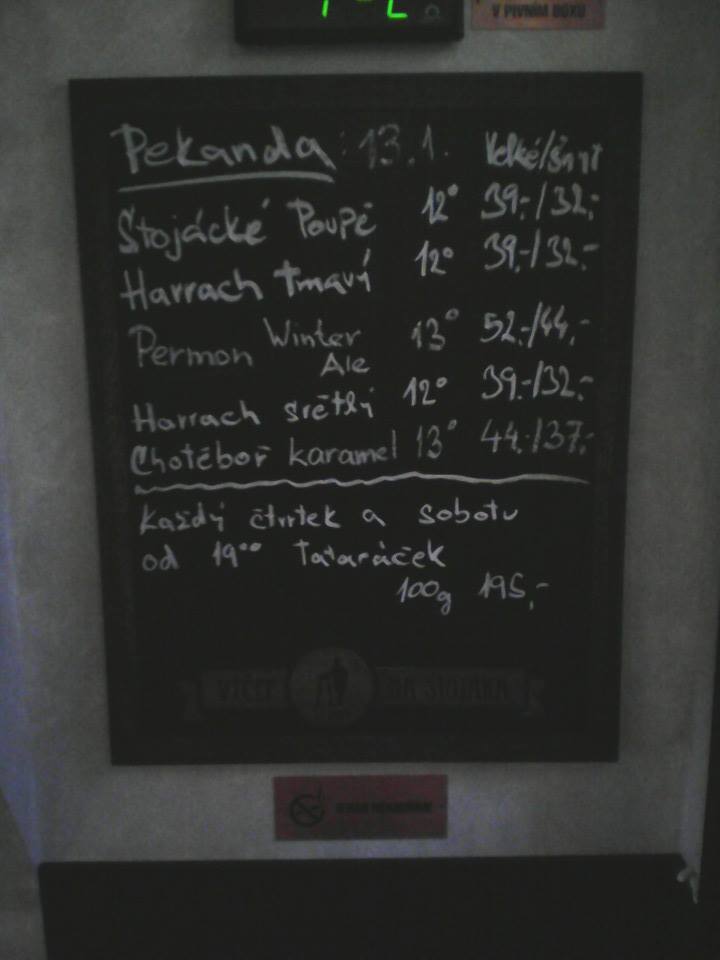 V PIVNÍM BOXU
Pekanda: 13.1. Velké/šnit
Stojácké Poupě 12° 39,-/32,-
Harrach tmavý 12° 39,-/32,-
Permon Winter Ale 13° 52,-/44,-
Harrach světlý 12° 39,-/32,-
Chotěboř karamel 13° 44,-/37,-
Každý čtvrtek a sobotu
od 19°° Tataráček
100g 195,-
VÝČEP NA STOJÁKA